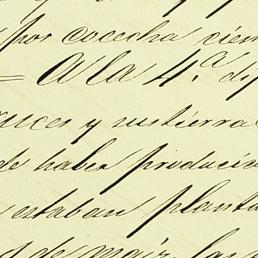 por cocecha cien
= A la 4.ª di
y sus tierra
de haber producir
estaban planta
de maiz, las